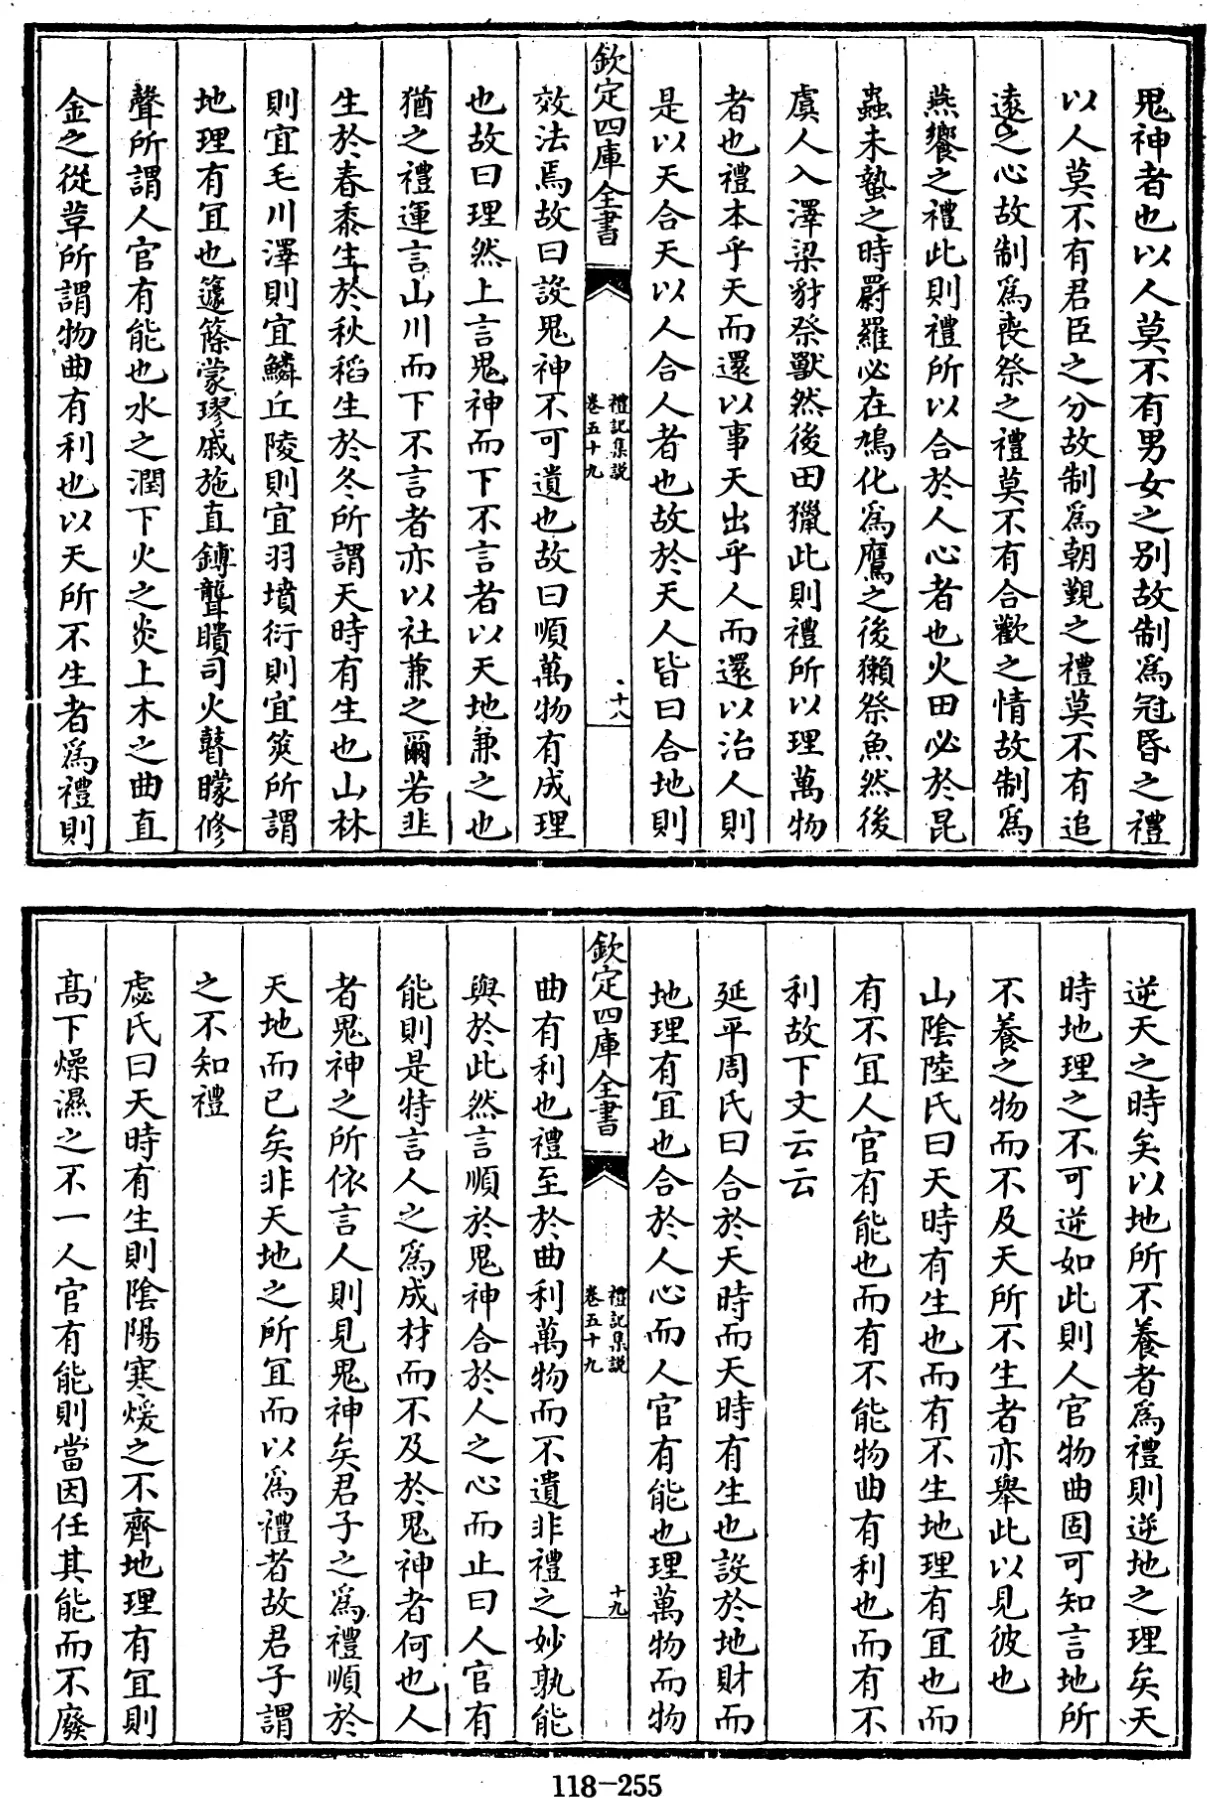 鬼神者也以人莫不有男女之别故制為冠昏之禮
以人莫不有君臣之分故制為朝覲之禮莫不有追
遠之心故制為喪祭之禮莫不有合歡之情故制為
燕饗之禮此則禮所以合於人心者也火田必於昆
蟲未蟄之時罻羅必在鳩化為鷹之後獺祭魚然後
虞人入澤梁豺祭獸然後田獵此則禮所以理萬物
者也禮本乎天而還以事天出乎人而還以治人則
是以天合天以人合人者也故於天人皆曰合地則
欽定四庫全書
禮記集説
卷五十九
十八
效法焉故曰設鬼神不可遺也故曰順萬物有成理
也故曰理然上言鬼神而下不言者以天地兼之也
猶之禮運言山川而下不言者亦以社兼之爾若韭
生於春黍生於秋稻生於冬所謂天時有生也山林
則宜毛川澤則宜鱗丘陵則宜羽墳衍則宜莢所謂
地理有宜也籧篨蒙璆戚施直鎛聾聵司火瞽矇修
聲所謂人官有能也水之潤下火之炎上木之曲直
金之從革所謂物曲有利也以天所不生者為禮則
逆天之時矣以地所不養者為禮則逆地之理矣天
時地理之不可逆如此則人官物曲固可知言地所
不養之物而不及天所不生者亦舉此以見彼也
山陰陸氏曰天時有生也而有不生地理有宜也而
有不宜人官有能也而有不能物曲有利也而有不
利故下文云云
延平周氏曰合於天時而天時有生也設於地財而
地理有宜也合於人心而人官有能也理萬物而物
欽定四庫全書
禮記集説
卷五十九
十九
曲有利也禮至於曲利萬物而不遺非禮之妙孰能
與於此然言順於鬼神合於人之心而止曰人官有
能則是特言人之為成材而不及於鬼神者何也人
者鬼神之所依言人則見鬼神矣君子之為禮順於
天地而已矣非天地之所宜而以為禮者故君子謂
之不知禮
慮氏曰天時有生則陰陽寒煖之不齊地理有宜則
髙下燥濕之不一人官有能則當因任其能而不廢
118-255